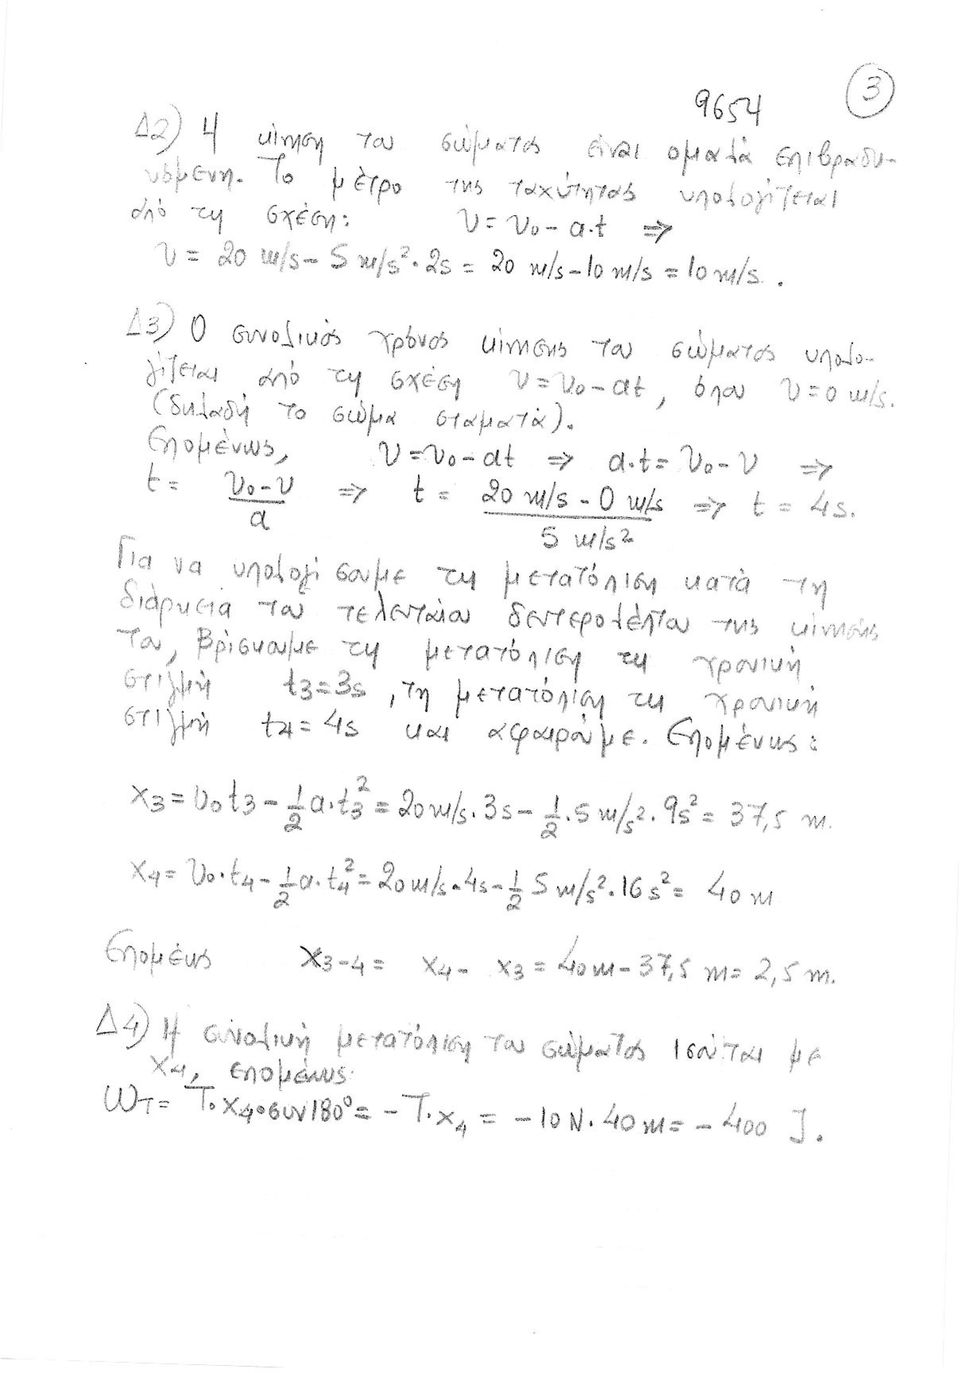 9654 3
Δ2) Η κίνηση του σώματος είναι ομαλά επιβραδυ-
νόμενη. Το μέτρο της ταχύτητας υπολογίζεται
από τη σχέση: υ = υ₀ - α·t ⇒
υ = 20 m/s - 5 m/s²·2s = 20 m/s - 10 m/s = 10 m/s.
Δ3) Ο συνολικός χρόνος κίνησης του σώματος υπολο-
γίζεται από τη σχέση υ = υ₀ - αt, όπου υ = 0 m/s.
(δηλαδή το σώμα σταματά).
Επομένως, υ = υ₀ - αt ⇒ α·t = υ₀ - υ ⇒
t = (υ₀ - υ)/α ⇒ t = (20 m/s - 0 m/s)/(5 m/s²) ⇒ t = 4s.
Για να υπολογίσουμε τη μετατόπιση κατά τη
διάρκεια του τελευταίου δευτερολέπτου της κίνησής
του, βρίσκουμε τη μετατόπιση τη χρονική
στιγμή t₃ = 3s, τη μετατόπιση τη χρονική
στιγμή t₄ = 4s και αφαιρούμε. Επομένως:
x₃ = υ₀t₃ - ½α·t₃² = 20 m/s·3s - ½·5 m/s²·9s² = 37,5 m.
x₄ = υ₀·t₄ - ½α·t₄² = 20 m/s·4s - ½ 5 m/s²·16 s² = 40 m
Επομένως x₃₋₄ = x₄ - x₃ = 40 m - 37,5 m = 2,5 m.
Δ4) Η συνολική μετατόπιση του σώματος ισούται με
x₄, επομένως:
W_T = T·x₄·συν180° = -T·x₄ = -10 N·40 m = -400 J.